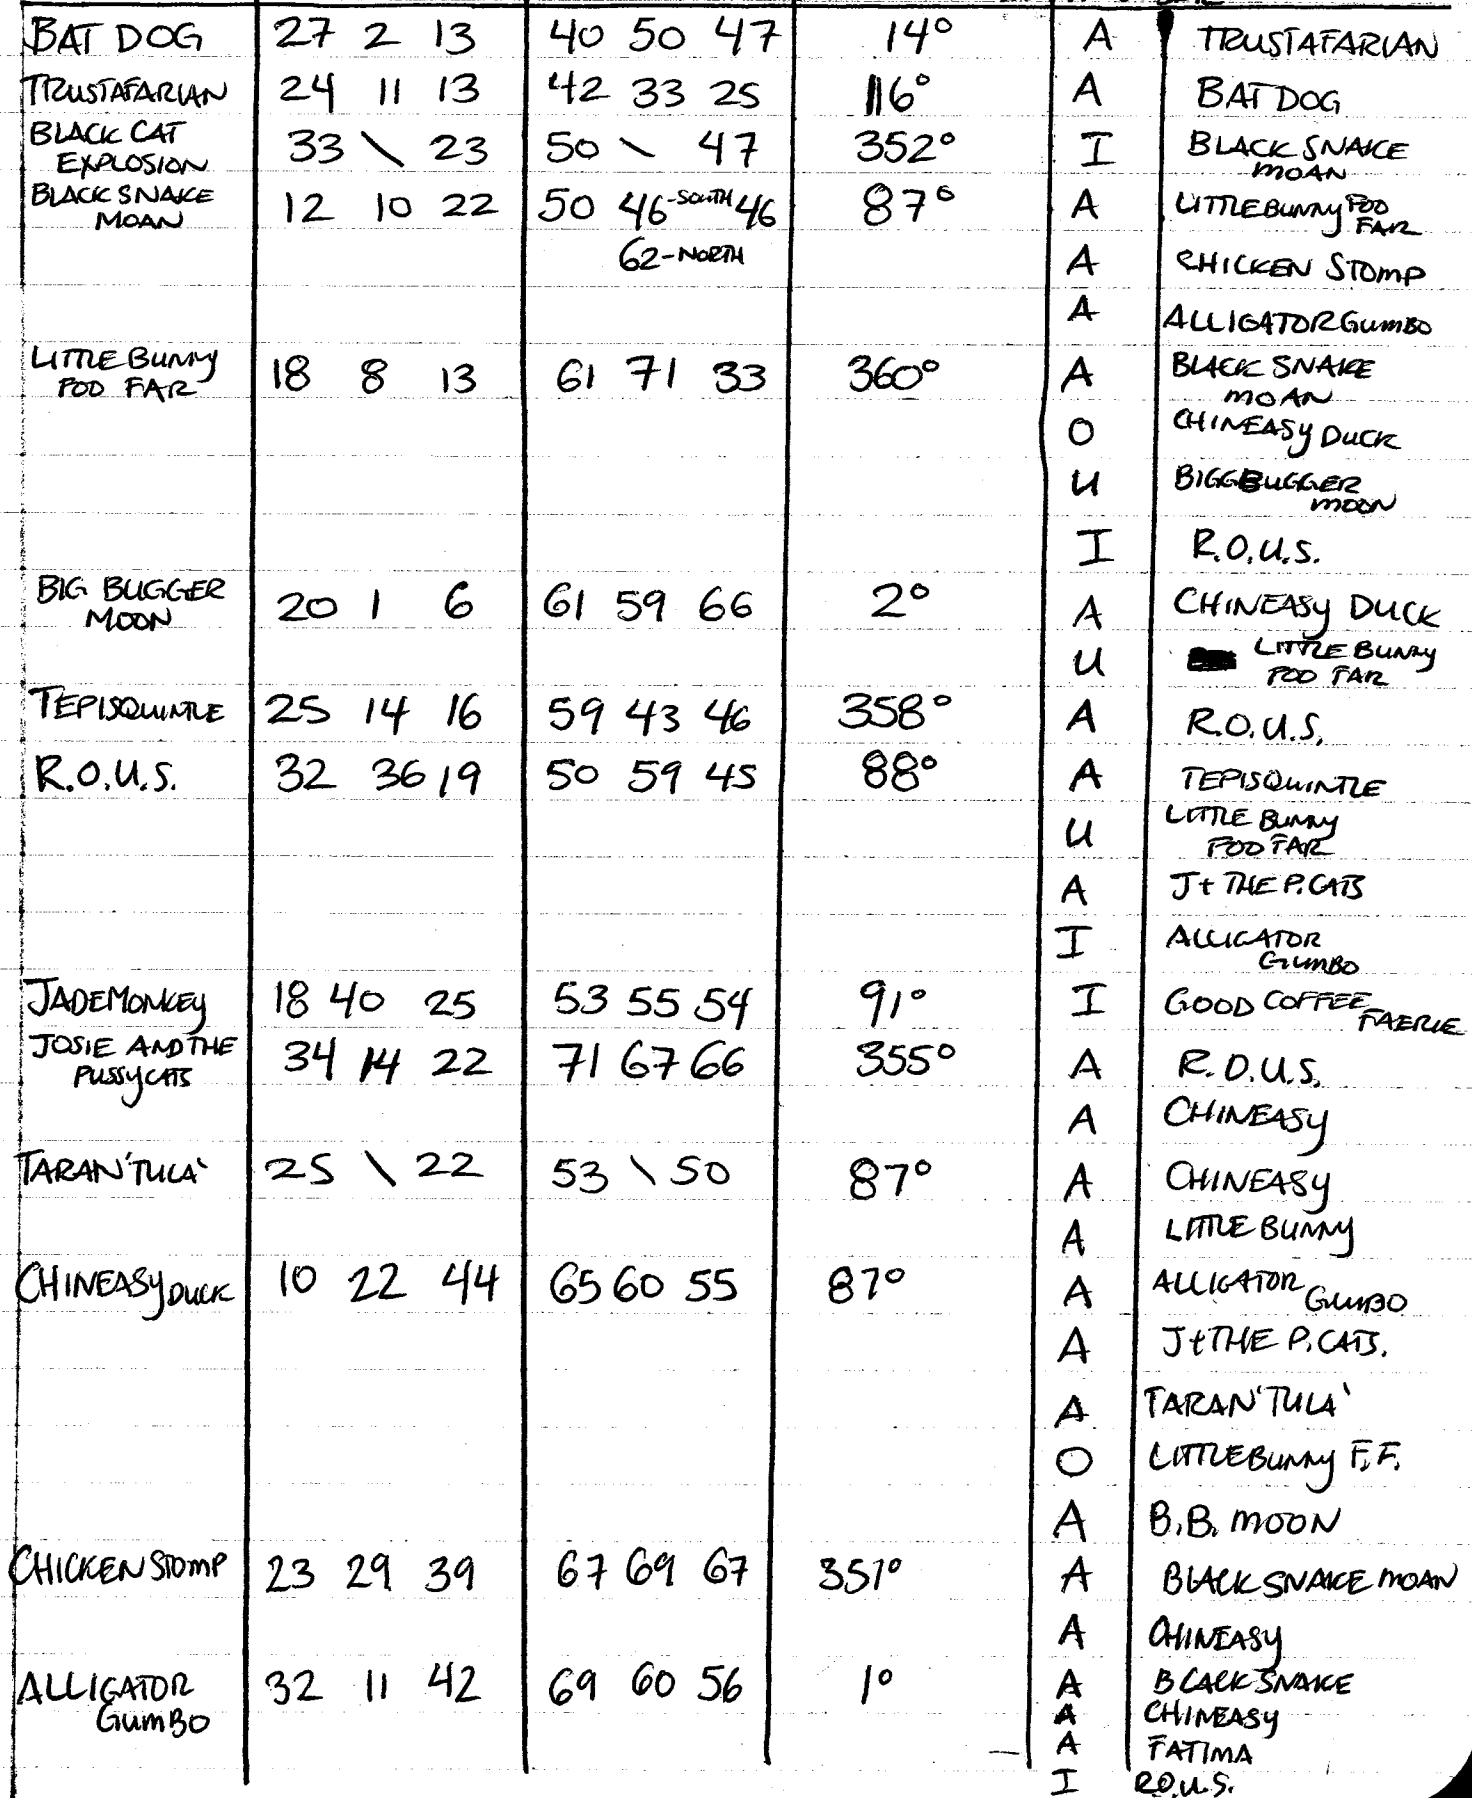 BAT DOG 27 2 13 40 50 47 14° A TRUSTAFARIAN
TRUSTAFARIAN 24 11 13 42 33 25 116° A BAT DOG
BLACK CAT 33 \ 23 50 \ 47 352° I BLACK SNAKE
EXPLOSION MOAN
BLACK SNAKE 12 10 22 50 46-SOUTH 46 87° A LITTLE BUNNY FOO
MOAN FAR
62-NORTH A CHICKEN STOMP
A ALLIGATOR GUMBO
LITTLE BUNNY 18 8 13 61 71 33 360° A BLACK SNAKE
FOO FAR MOAN
O CHINEASY DUCK
U BIGG BUGGER
MOON
I R.O.U.S.
BIG BUGGER 20 1 6 61 59 66 2° A CHINEASY DUCK
MOON
U LITTLE BUNNY
FOO FAR
TEPISQUINTLE 25 14 16 59 43 46 358° A R.O.U.S.
R.O.U.S. 32 36 19 50 59 45 88° A TEPISQUINTLE
U LITTLE BUNNY
FOO FAR
A J+ THE P. CATS
I ALLIGATOR
GUMBO
JADE MONKEY 18 40 25 53 55 54 91° I GOOD COFFEE
FAERIE
JOSIE AND THE 34 14 22 71 67 66 355° A R.O.U.S.
PUSSYCATS
A CHINEASY
TARAN'TULA' 25 \ 22 53 \ 50 87° A CHINEASY
A LITTLE BUNNY
CHINEASY DUCK 10 22 44 65 60 55 87° A ALLIGATOR
GUMBO
A J+THE P. CATS.
A TARAN'TULA'
O LITTLE BUNNY F.F.
A B.B. MOON
CHICKEN STOMP 23 29 39 67 69 67 351° A BLACK SNAKE MOAN
A CHINEASY
ALLIGATOR 32 11 42 69 60 56 1° A BLACK SNAKE
GUMBO A CHINEASY
A FATIMA
I R.O.U.S.